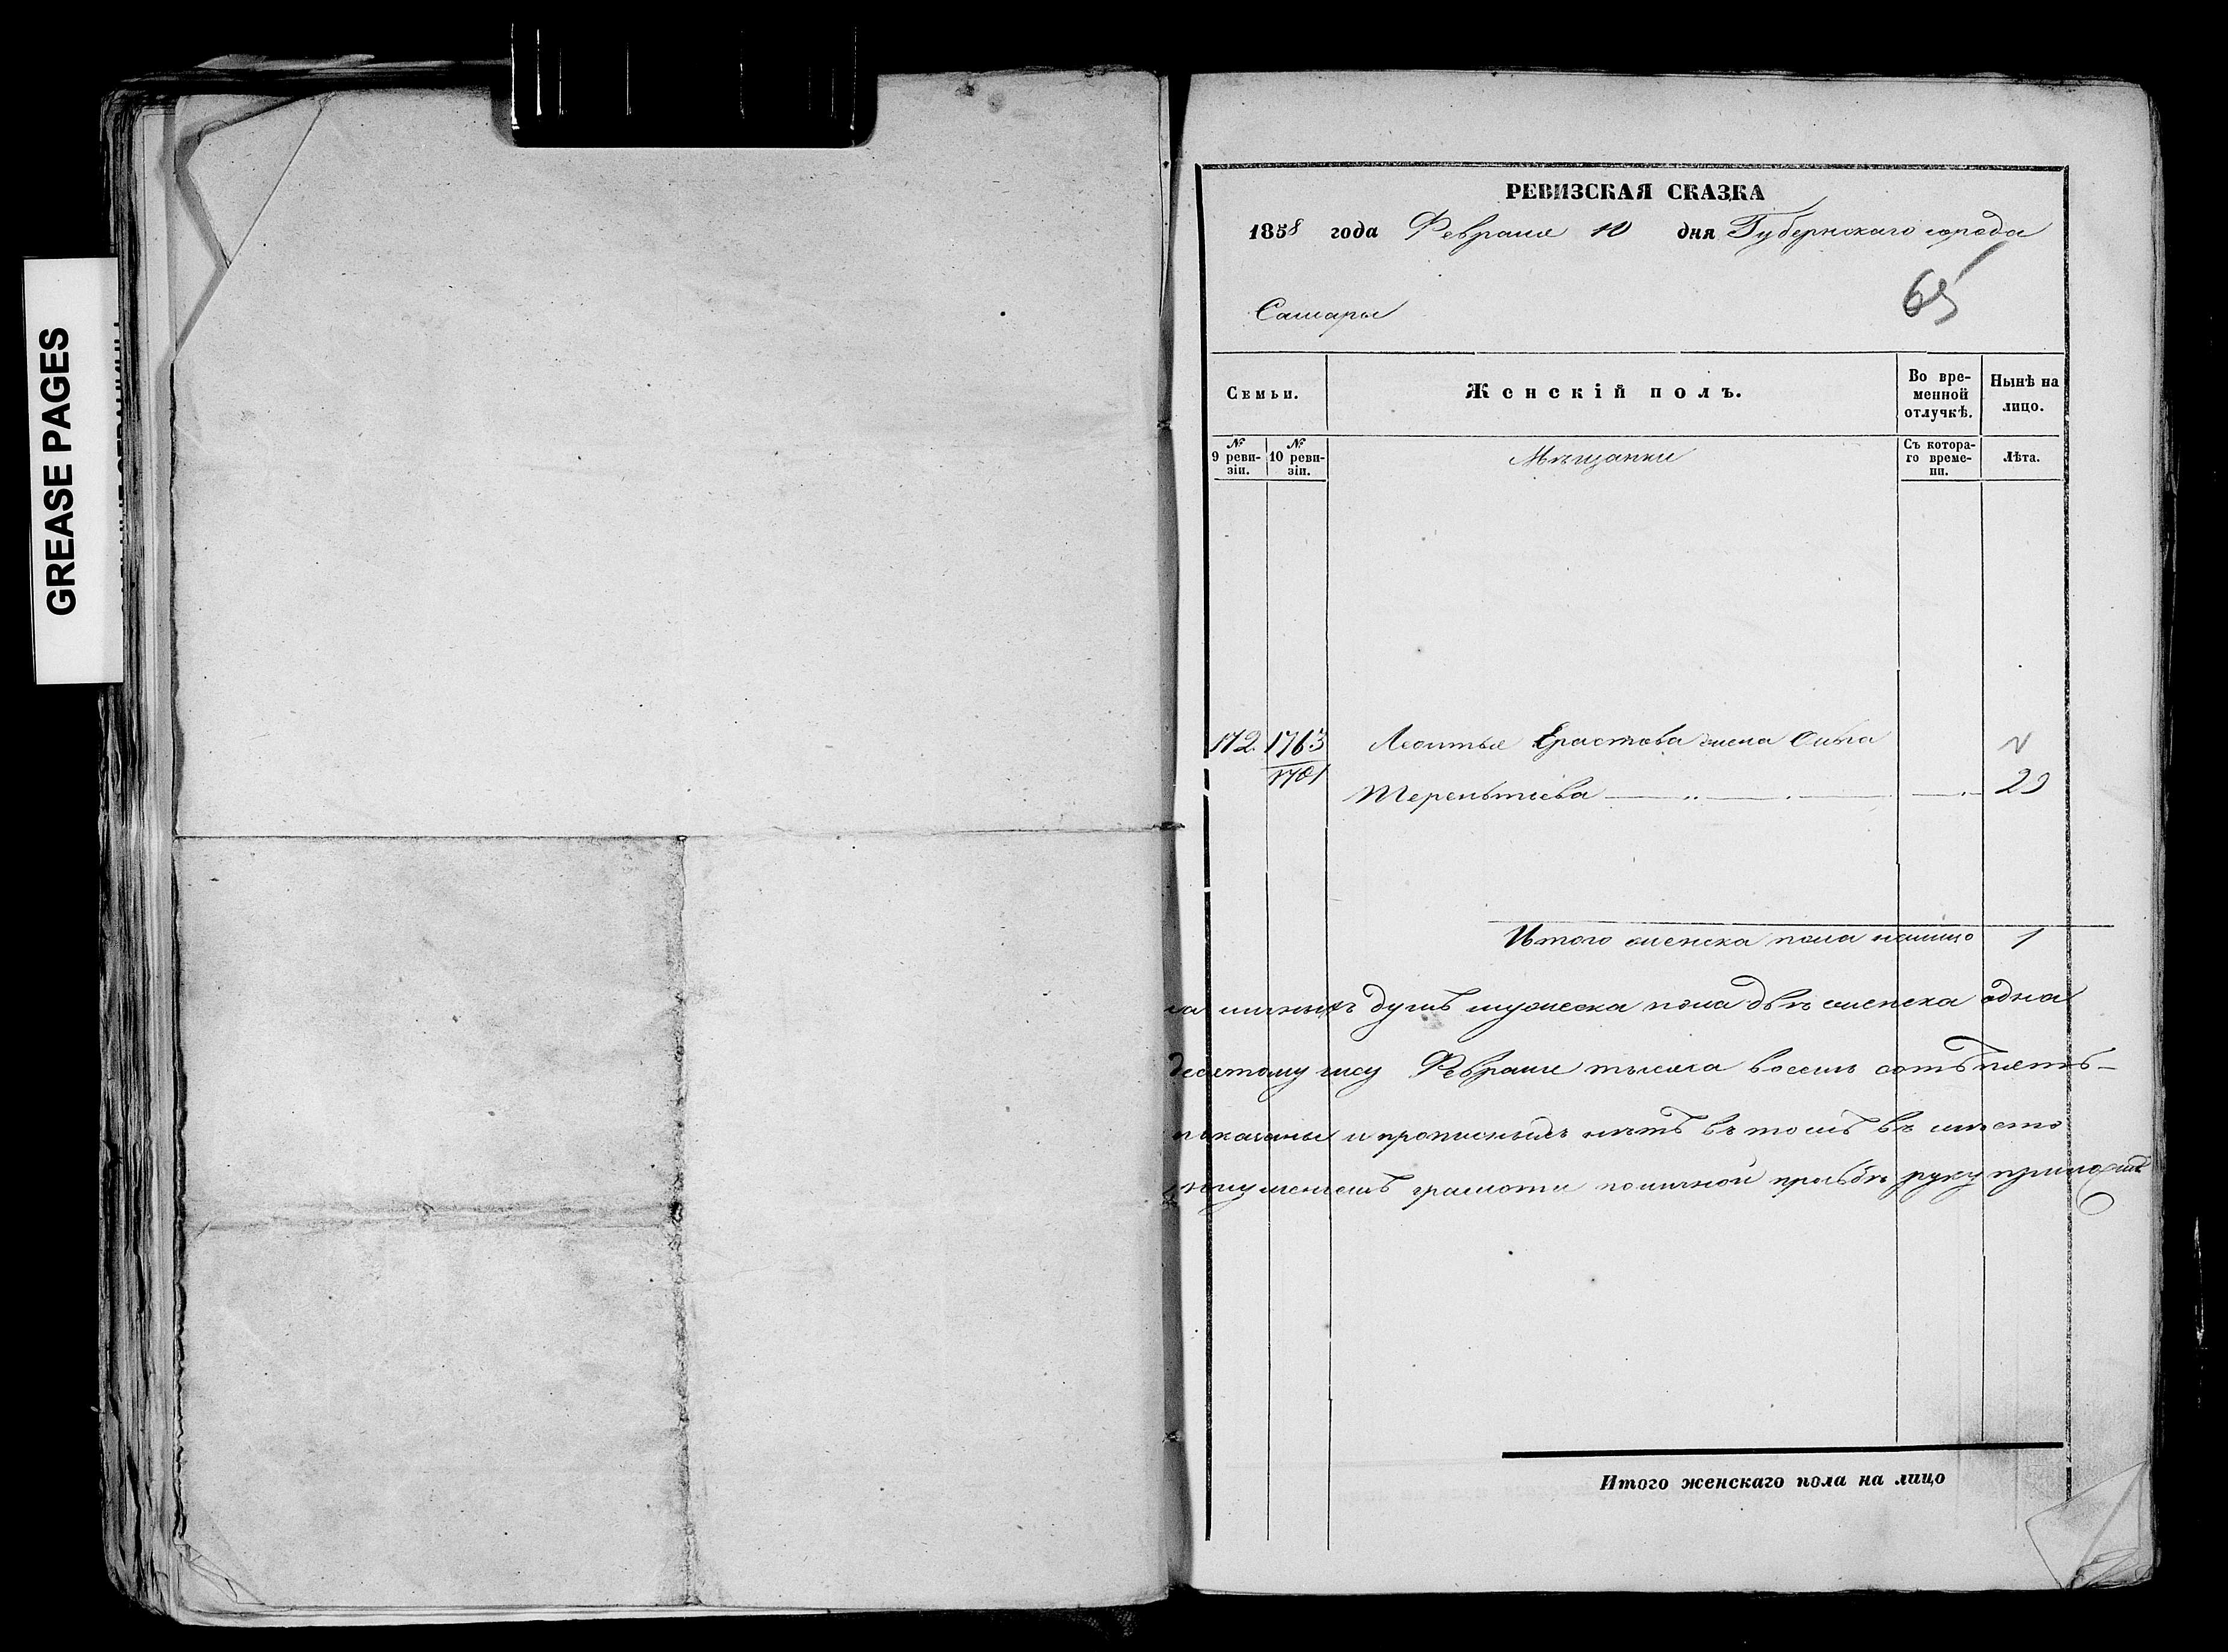 GREASE PAGES
РЕВИЗСКАЯ СКАЗКА
1858 года Февраля 10 дня Губернскаго города
65
Самары
Семьи.
Женскій полъ.
Во вре-
менной
отлучкѣ.
Нынѣ на
лицо.
№
9 реви-
зіи.
№
10 реви-
зіи.
Мѣщанки
Съ котора-
го време-
ни.
Лѣта.
172. 1763 Леонтья Ерастова жена Ольга
1701
Терентьева 29
Итого женска пола налицо 1
личныхъ душъ мужеска пола двѣ женска одна
десятому числу Февраля тысяча восемь сотъ пять-
показаны и прописныхъ нѣтъ въ томъ въ мѣсто
грамоты по личной прозьбѣ руку приложилъ
Итого женскаго пола на лицо